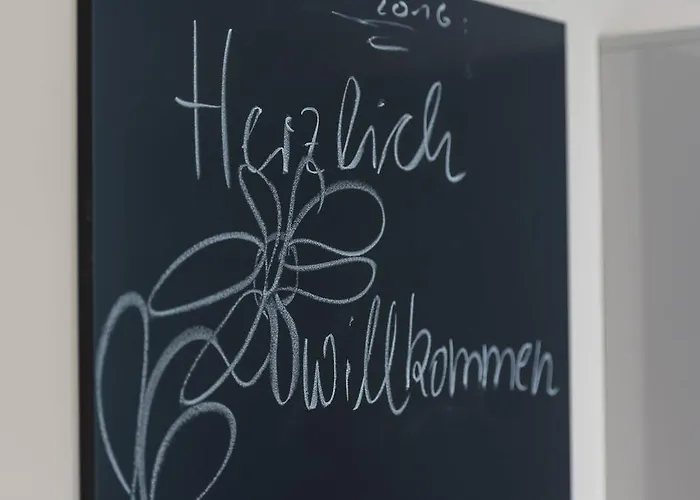 2016
Herzlich
willkommen